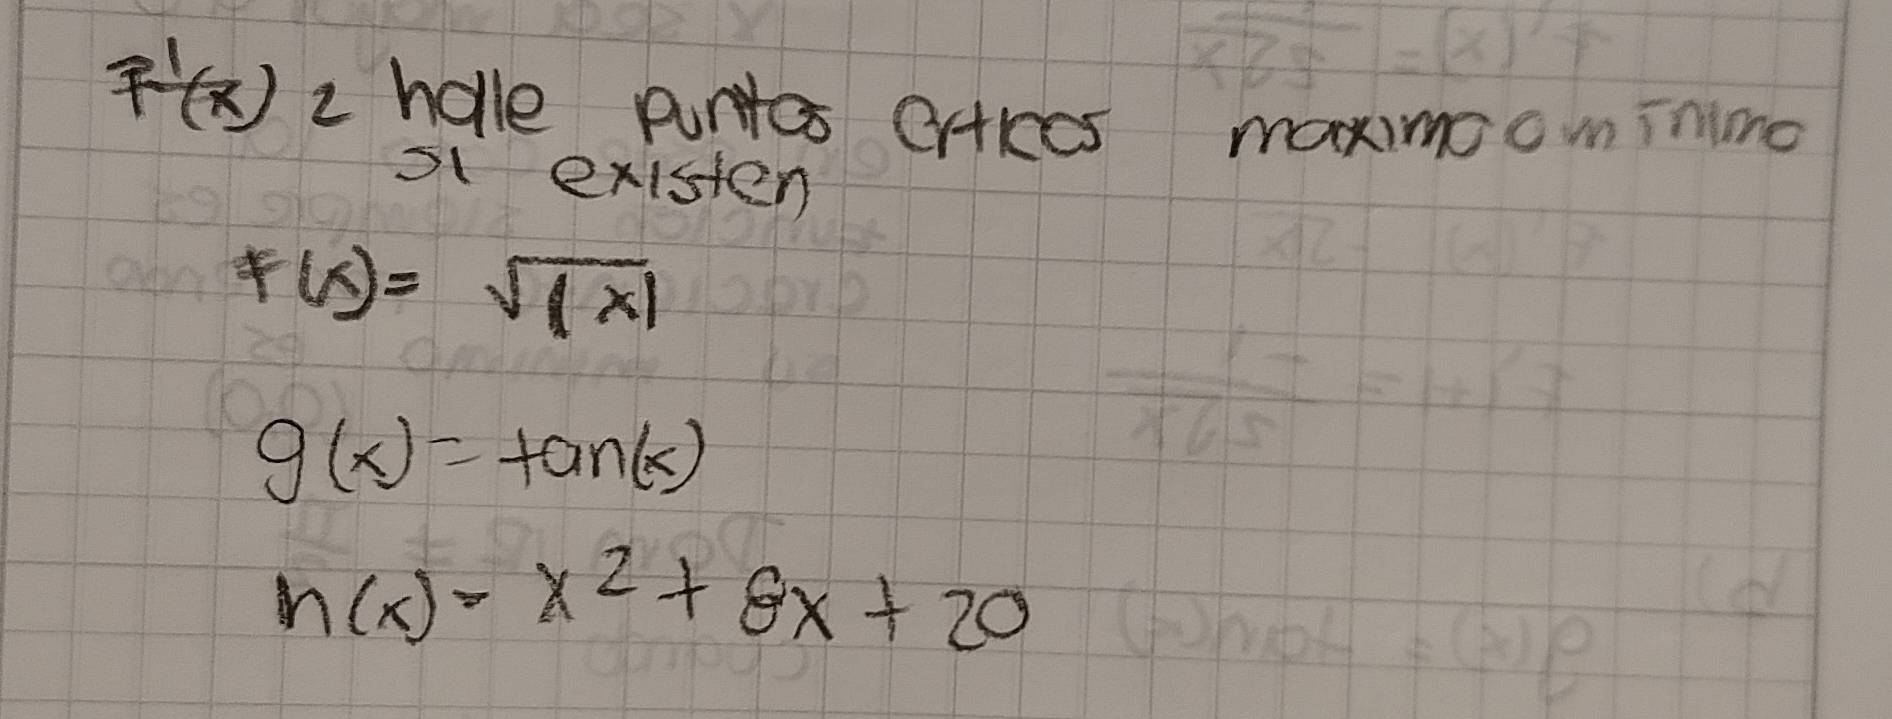 F'(x) 2 halle puntos criticos maximo o minimo
si existen
F(x) = √|x|
g(x) = tan(x)
h(x) = x² + 8x + 20